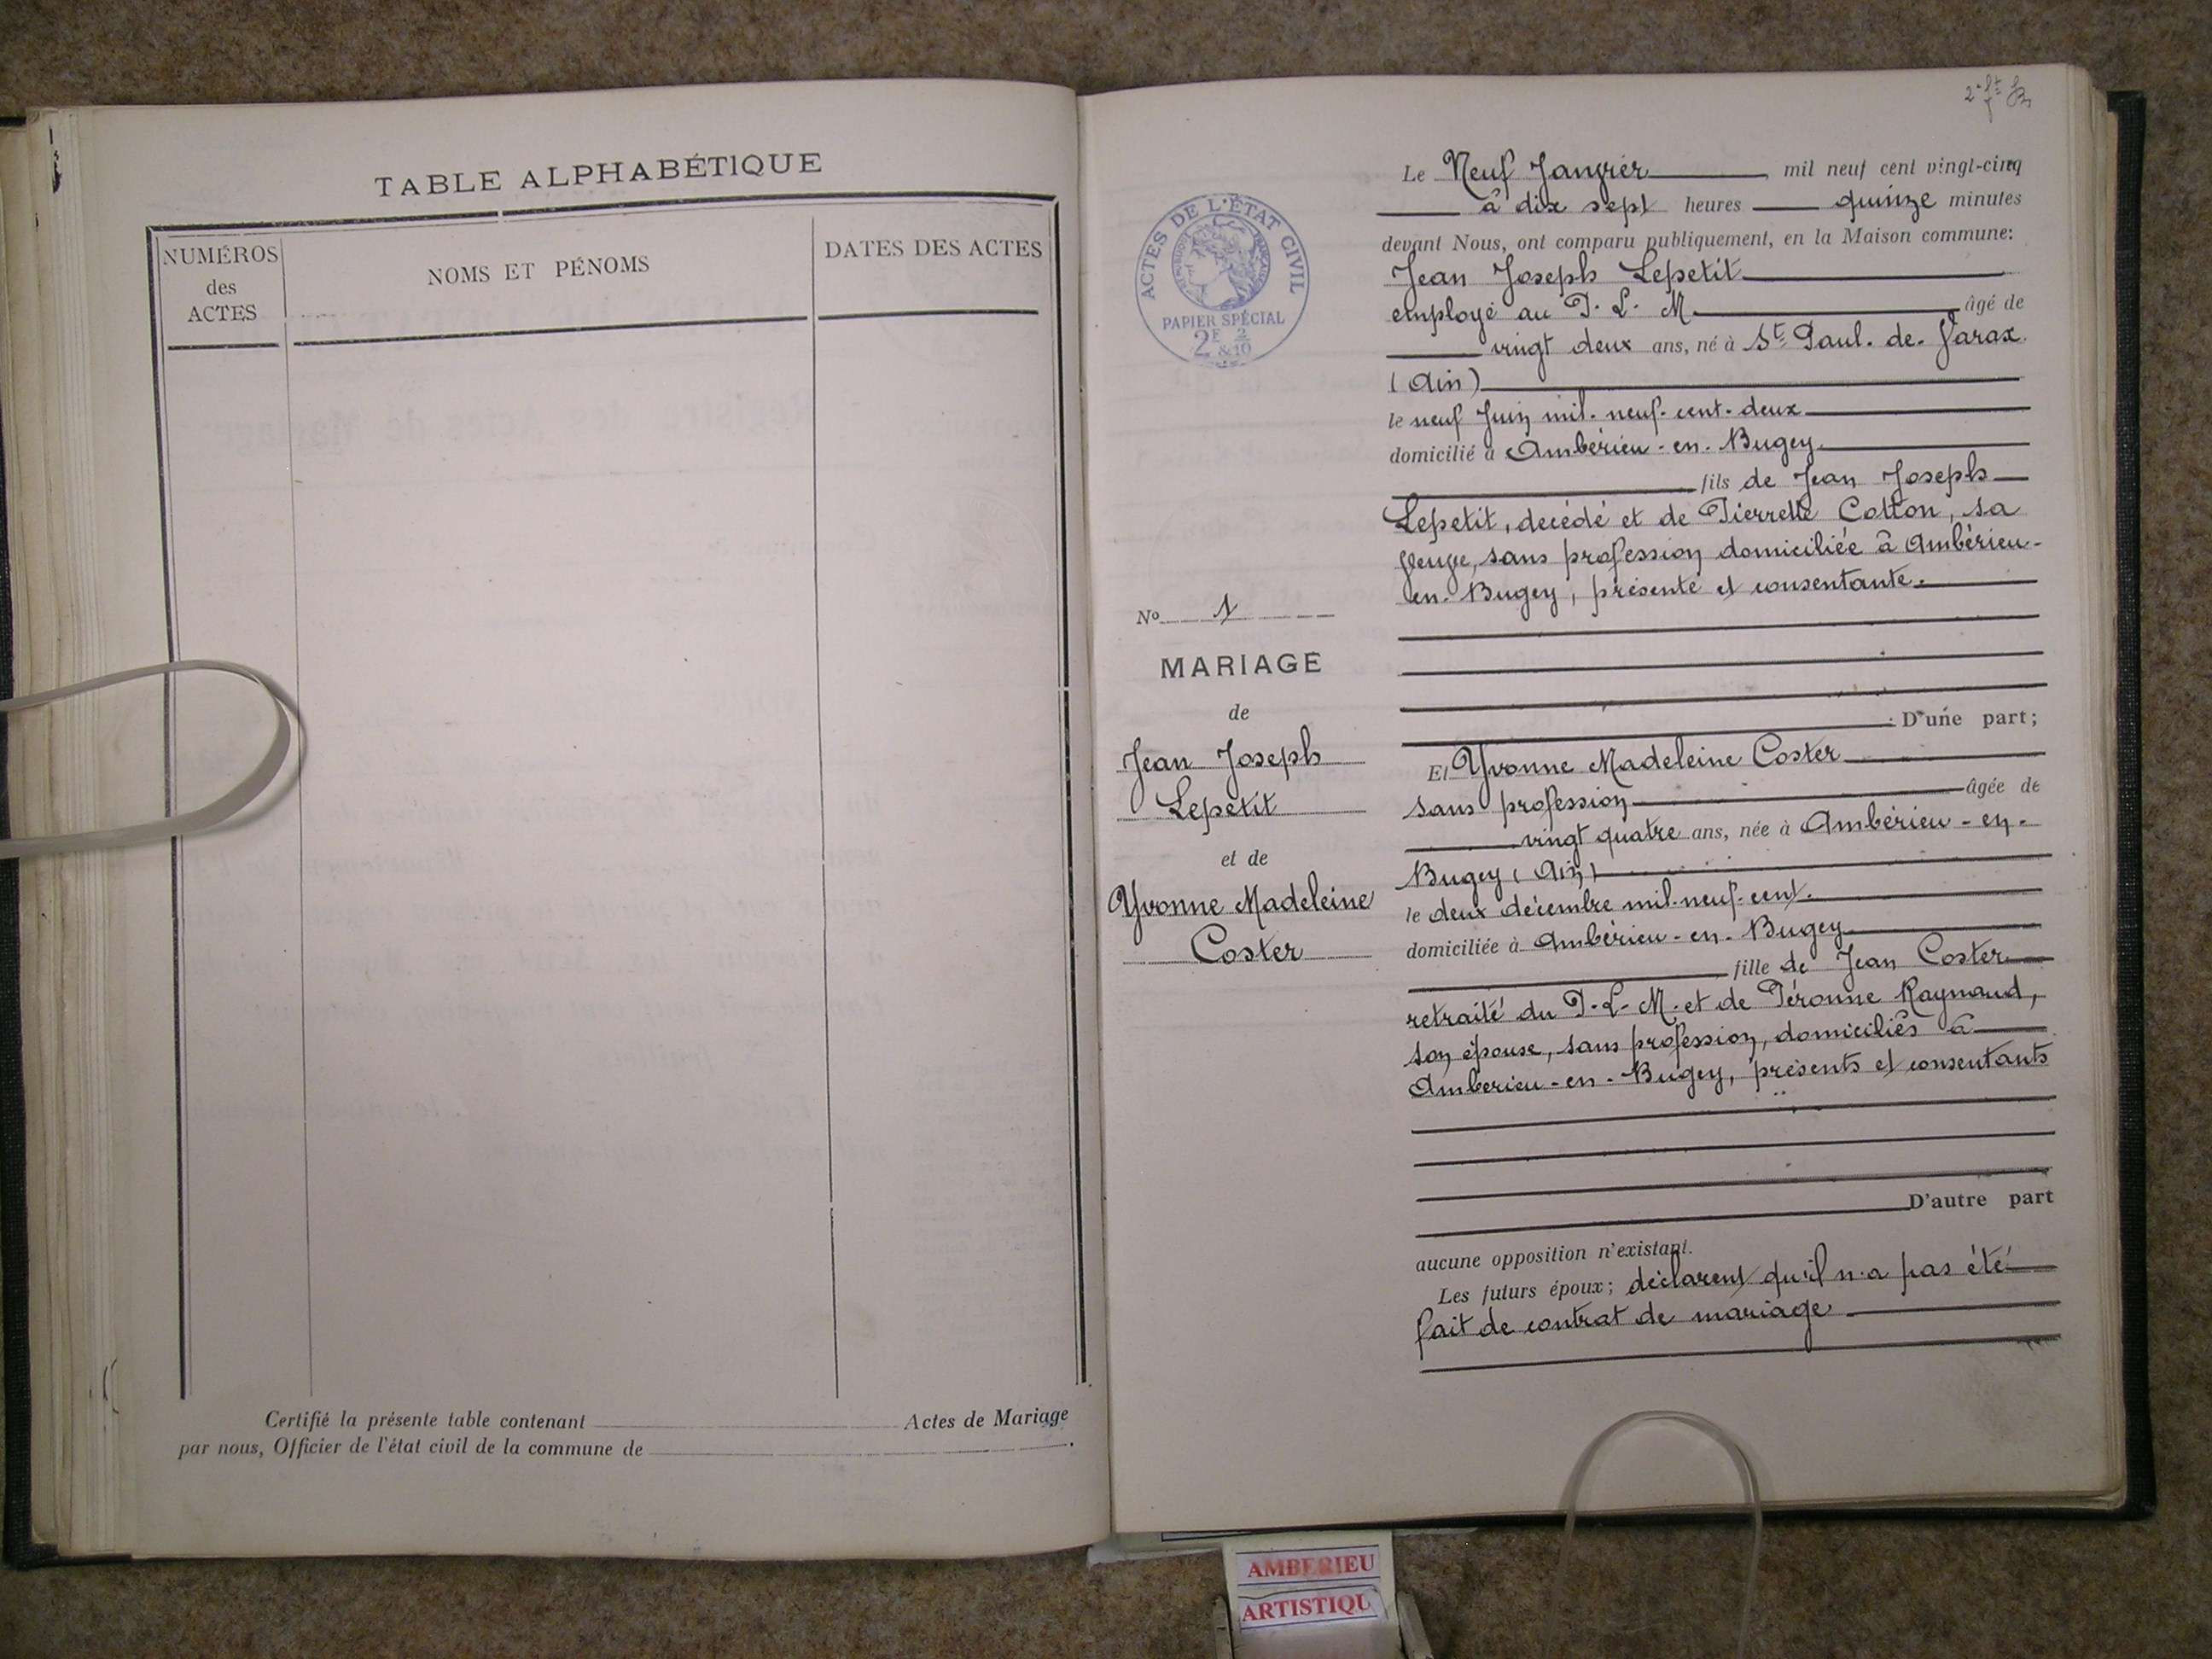 TABLE ALPHABÉTIQUE
NUMÉROS
des
ACTES
NOMS ET PÉNOMS
DATES DES ACTES
Certifié la présente table contenant Actes de Mariage
par nous, Officier de l'état civil de la commune de
ACTES DE L'ÉTAT CIVIL
PAPIER SPÉCIAL
2F 2
&10
No 1
MARIAGE
de
Jean Joseph
Lepetit
et de
Yvonne Madeleine
Coster
Le Neuf Janvier mil neuf cent vingt-cinq
à dix sept heures quinze minutes
devant Nous, ont comparu publiquement, en la Maison commune:
Jean Joseph Lepetit
employé au P. L. M. âgé de
vingt deux ans, né à St Paul. de. Varax.
(Ain)
le neuf Juin mil. neuf. cent. deux
domicilié à Ambérieu-en-Bugey
fils de Jean Joseph
Lepetit, décédé et de Pierrette Cotton, sa
veuve, sans profession domiciliée à Ambérieu-
en-Bugey, présente et consentante.
D'une part;
Et Yvonne Madeleine Coster
sans profession âgée de
vingt quatre ans, née à Ambérieu-en-
Bugey (Ain)
le deux décembre mil-neuf-cent.
domiciliée à Ambérieu-en-Bugey
fille de Jean Coster
retraité du P. L. M. et de Péronne Raynaud,
son épouse, sans profession, domiciliés à
Ambérieu-en-Bugey, présents et consentants
D'autre part
aucune opposition n'existant.
Les futurs époux; déclarent qu'il n'a pas été
fait de contrat de mariage
AMBERIEU
ARTISTIQU